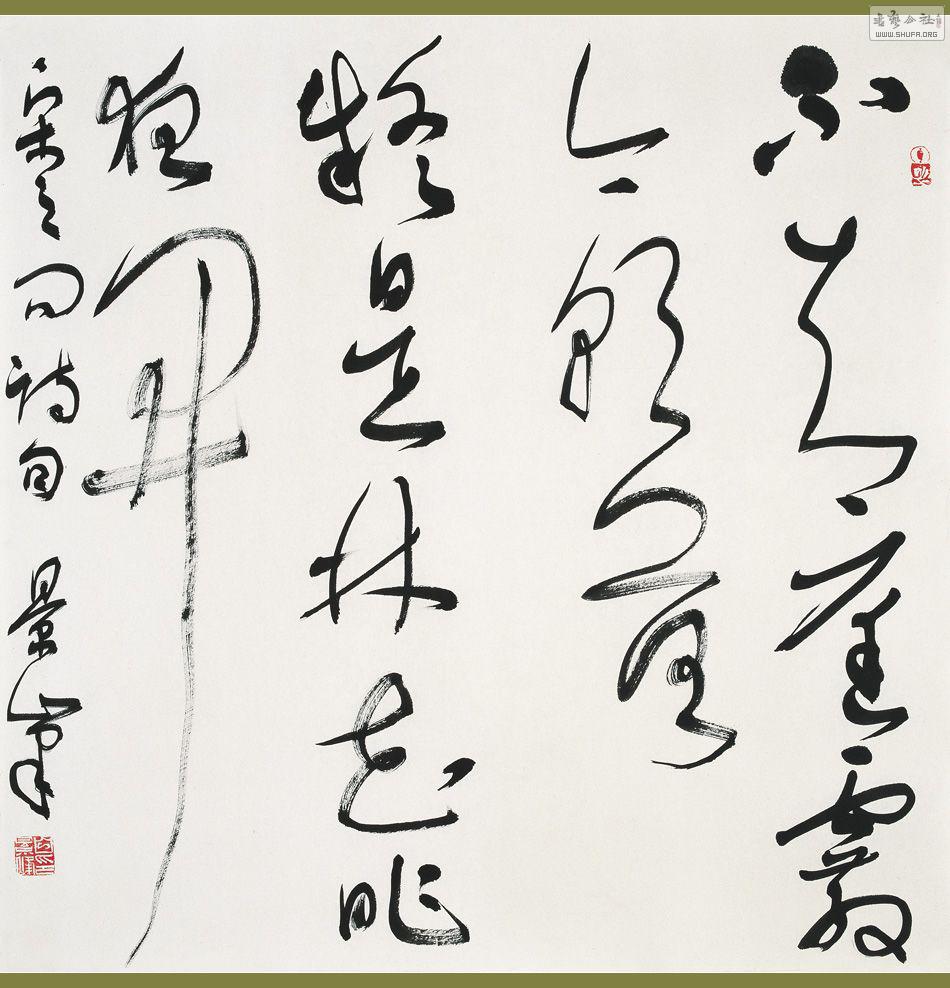 書藝公社
WWW.SHUFA.ORG
不知庭霰
今朝落
疑是林花昨
夜開
宋之問詩句 景